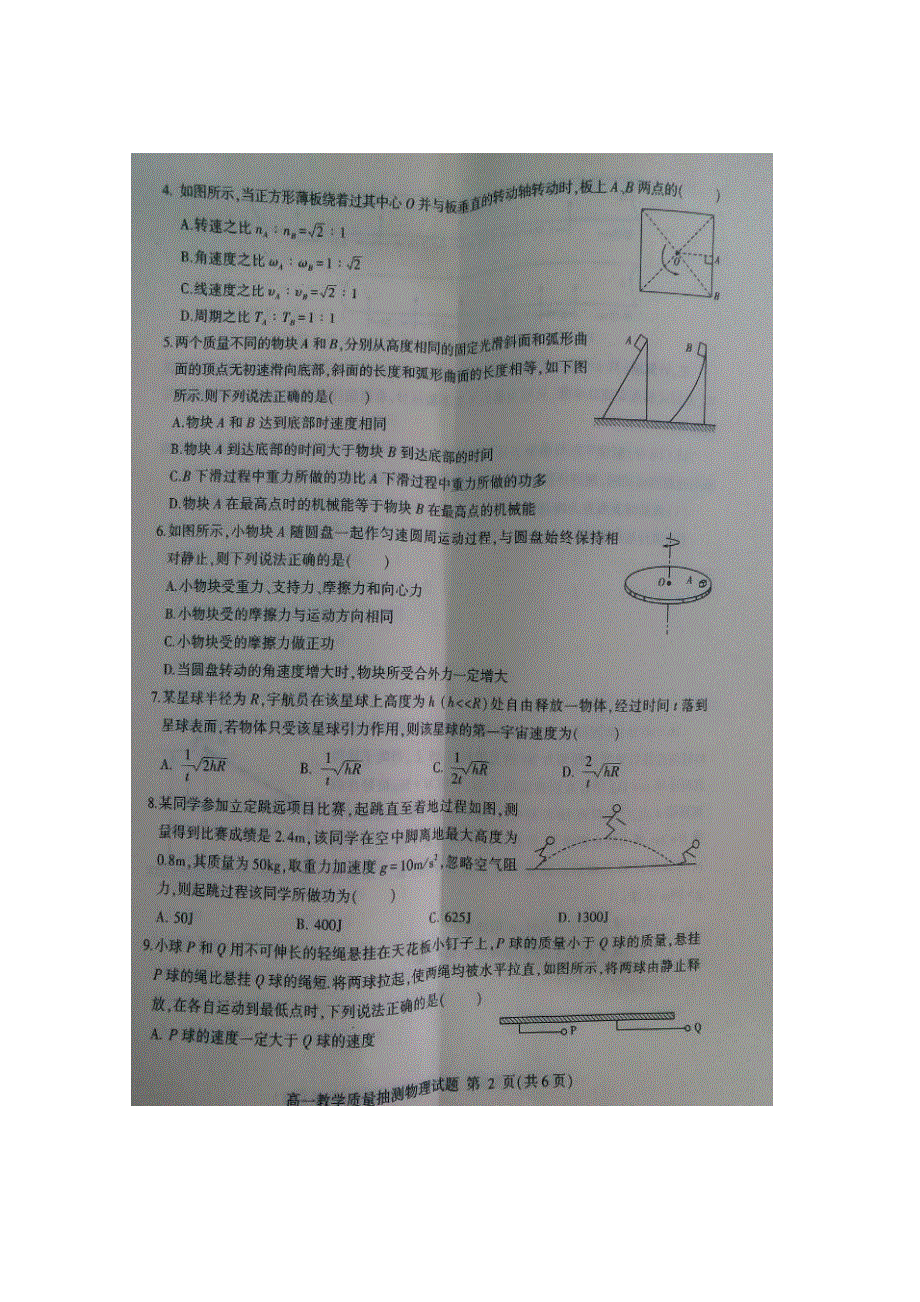 4. 如图所示,当正方形薄板绕着过其中心 O 并与板垂直的转动轴转动时,板上 A、B 两点的(　　)
A.转速之比 nA：nB=√2：1
B.角速度之比 ωA：ωB=1：√2
C.线速度之比 υA：υB=√2：1
D.周期之比 TA：TB=1：1
O
A
B
5.两个质量不同的物块 A 和 B,分别从高度相同的固定光滑斜面和弧形曲
面的顶点无初速滑向底部,斜面的长度和弧形曲面的长度相等,如下图
所示.则下列说法正确的是(　　)
A.物块 A 和 B 达到底部时速度相同
B.物块 A 到达底部的时间大于物块 B 到达底部的时间
C.B 下滑过程中重力所做的功比 A 下滑过程中重力所做的功多
D.物块 A 在最高点时的机械能等于物块 B 在最高点的机械能
A
B
6.如图所示,小物块 A 随圆盘一起作匀速圆周运动过程,与圆盘始终保持相
对静止,则下列说法正确的是(　　)
A.小物块受重力、支持力、摩擦力和向心力
B.小物块受的摩擦力与运动方向相同
C.小物块受的摩擦力做正功
D.当圆盘转动的角速度增大时,物块所受合外力一定增大
O
A
7.某星球半径为 R,宇航员在该星球上高度为 h (h<<R)处自由释放一物体,经过时间 t 落到
星球表面,若物体只受该星球引力作用,则该星球的第一宇宙速度为(　　)
A. 1/t √2hR　B. 1/t √hR　C. 1/2t √hR　D. 2/t √hR
8.某同学参加立定跳远项目比赛,起跳直至着地过程如图,测
量得到比赛成绩是 2.4m,该同学在空中脚离地最大高度为
0.8m,其质量为 50kg,取重力加速度 g=10m/s²,忽略空气阻
力,则起跳过程该同学所做功为(　　)
A. 50J　B. 400J　C. 625J　D. 1300J
9.小球 P 和 Q 用不可伸长的轻绳悬挂在天花板小钉子上,P 球的质量小于 Q 球的质量,悬挂
P 球的绳比悬挂 Q 球的绳短.将两球拉起,使两绳均被水平拉直,如图所示,将两球由静止释
放,在各自运动到最低点时,下列说法正确的是(　　)
A. P 球的速度一定大于 Q 球的速度
P
Q
高一教学质量抽测物理试题 第 2 页(共6页)